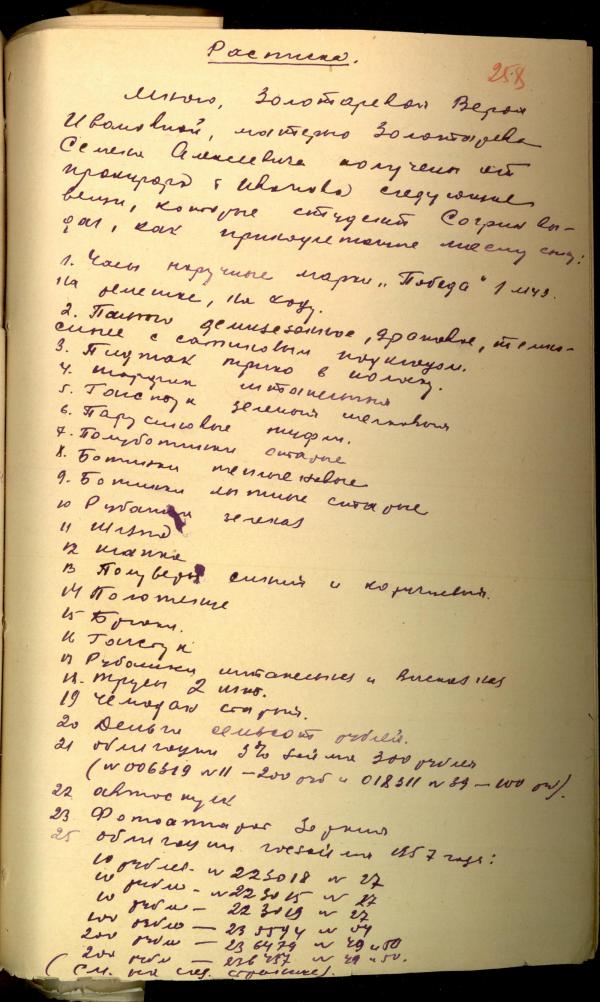 Расписка.
258
Мною, Золотаревой Верой
Ивановной, матерью Золотарева
Семена Алексеевича получены от
прокурора т Иванова следующие
вещи, которые студент Согрин вы-
дал, как принадлежащие моему сыну:
1. Часы наручные марки „Победа" 1 мчз.
на ремешке, на ходу.
2. Пальто демисезонное, драповое, темно-
синее с сатиновым подкладом.
3. Пиджак трико в полоску.
4. шарфик штапельный
5. Галстук зеленый шелковый
6. Парусиновые туфли.
7. Полуботинки старые
8. Ботинки теплые новые
9. Ботинки лыжные старые
10 Рубашка зеленая
11
12 шапка
13 Полувера синий и коричневый.
14 Полотенце
15 Брюки.
16 Галстук
17 Рубашки штапельная и вискозная
18. Трусы 2 шт.
19 Чемодан старый.
20 Деньги семьсот рублей.
21 облигации 3% займа 300 рублей
(№006319 №11 – 200 руб и 018311 №39 – 100 руб).
22
23 Фотоаппарат Зоркий
25 облигации госзайма 1957 года:
10 рублей - №223018 №27
10 рубле - №223015 №27
10 рубле — 223019 №27
100 рубле —
200 рубле — 236479 №49 и 50
200 рубле — 236457 №49 и 50.
(См. на след. странице).